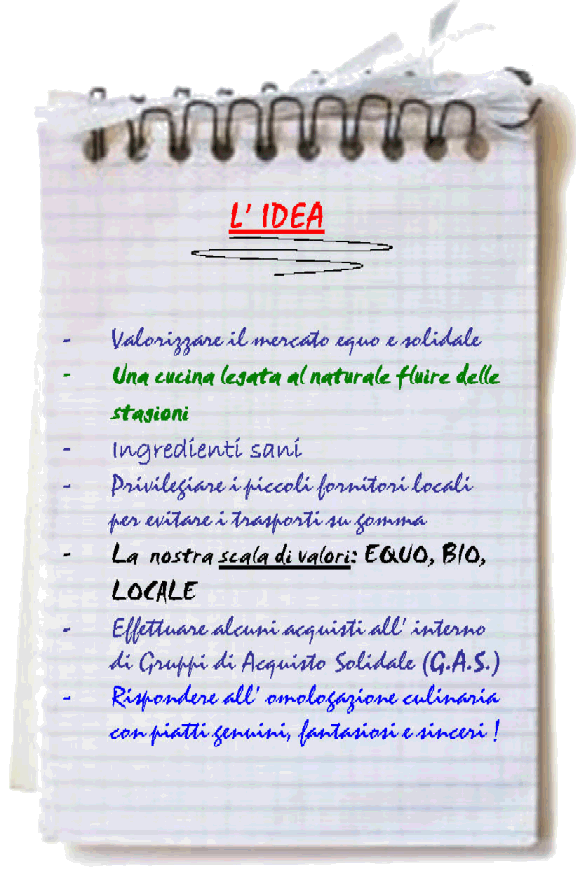 L' IDEA
- Valorizzare il mercato equo e solidale
- Una cucina legata al naturale fluire delle
stagioni
- Ingredienti sani
- Privilegiare i piccoli fornitori locali
per evitare i trasporti su gomma
- La nostra scala di valori: EQUO, BIO,
LOCALE
- Effettuare alcuni acquisti all' interno
di Gruppi di Acquisto Solidale (G.A.S.)
- Rispondere all' omologazione culinaria
con piatti genuini, fantasiosi e sinceri !